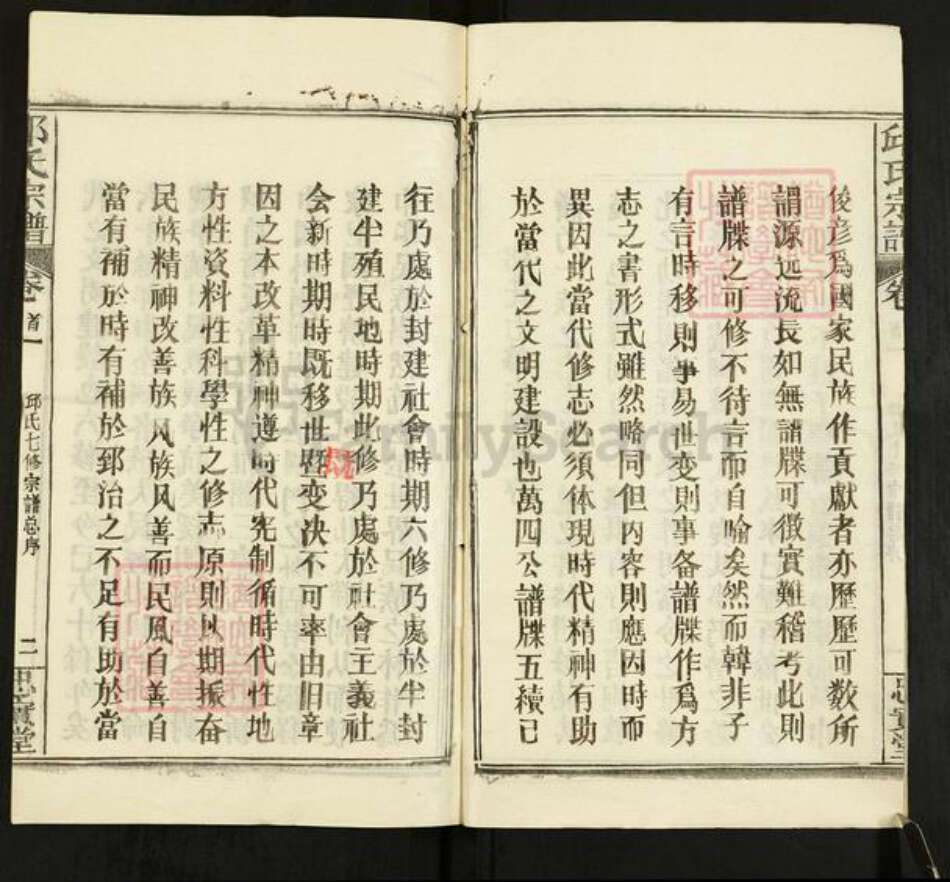 邱氏宗譜
卷
忠實堂
俊彥爲國家民族作貢獻者亦歷歷可数所
謂源远流長如無譜牒可徴實難稽考此則
譜牒之可修不待言而自喻矣然而韓非子
有言時移則事易世变則事备譜牒作爲方
志之書形式雖然略同但内容則應因時而
異因此當代修志必須体現時代精神有助
於當代之文明建設也萬四公譜牒五續已
往乃處於封建社會時期六修乃處於半封
建半殖民地時期此修乃處於社會主義社
会新時期時既移世既变决不可率由旧章
因之本改革精神遵時代宪制循時代性地
方性資料性科學性之修志原則以期振奋
民族精神改善族风族风善而民風自善自
當有補於時有補於郅治之不足有助於當
邱氏宗譜
卷首一
邱氏七修宗譜总序
二
忠實堂
FamilySearch